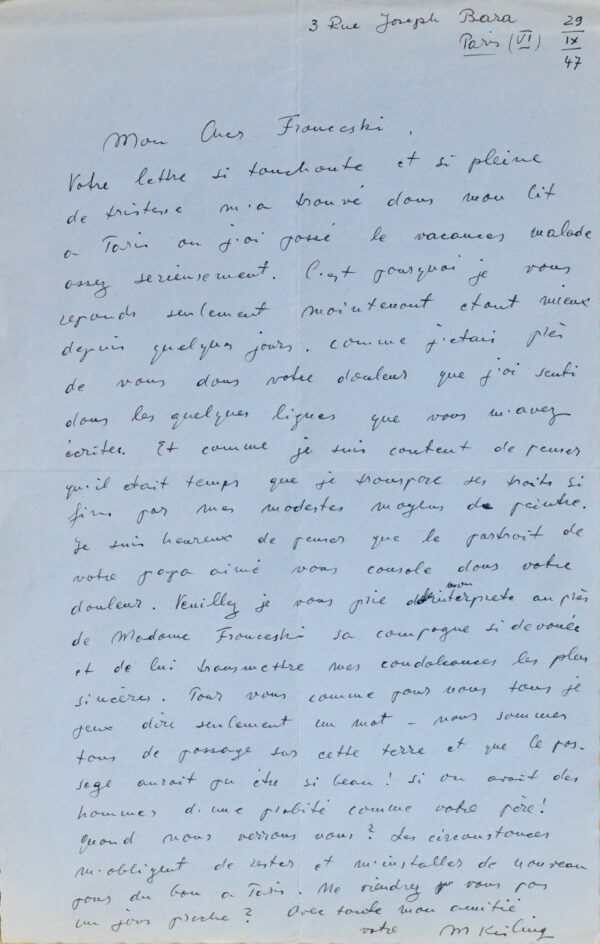 3 Rue Joseph Bara
Paris (VI)
29
IX
47
Mon Cher Franceski,
Votre lettre si touchante et si pleine
de tristesse m'a trouvé dans mon lit
a Paris ou j'ai passé le vacances malade
assez serieusement. C'est pourquoi je vous
reponds seulement maintenant etant mieux
depuis quelques jours. Comme j'etais près
de vous dans votre douleur que j'ai senti
dans les quelques lignes que vous m'avez
écrites. Et comme je suis content de penser
qu'il etait temps que je transpose ses traits si
fins par mes modestes moyens de peintre.
Je suis heureux de penser que le portrait de
votre papa aimé vous console dans votre
douleur. Veuillez je vous prie mon interprete auprès
de Madame Franceski sa compagne si devouée
et de lui transmettre mes condoleances les plus
sincères. Pour vous comme pour nous tous je
peux dire seulement un mot - nous sommes
tous de passage sur cette terre et que le pas-
sage aurait pu être si beau! si on avait des
hommes d'une probité comme votre père!
Quand nous verrons nous? Les circonstances
m'obligent de rester et m'installer de nouveau
pour du bon a Paris. Ne viendrez vous pas
un jour proche? Avec toute mon amitié
votre M Kisling